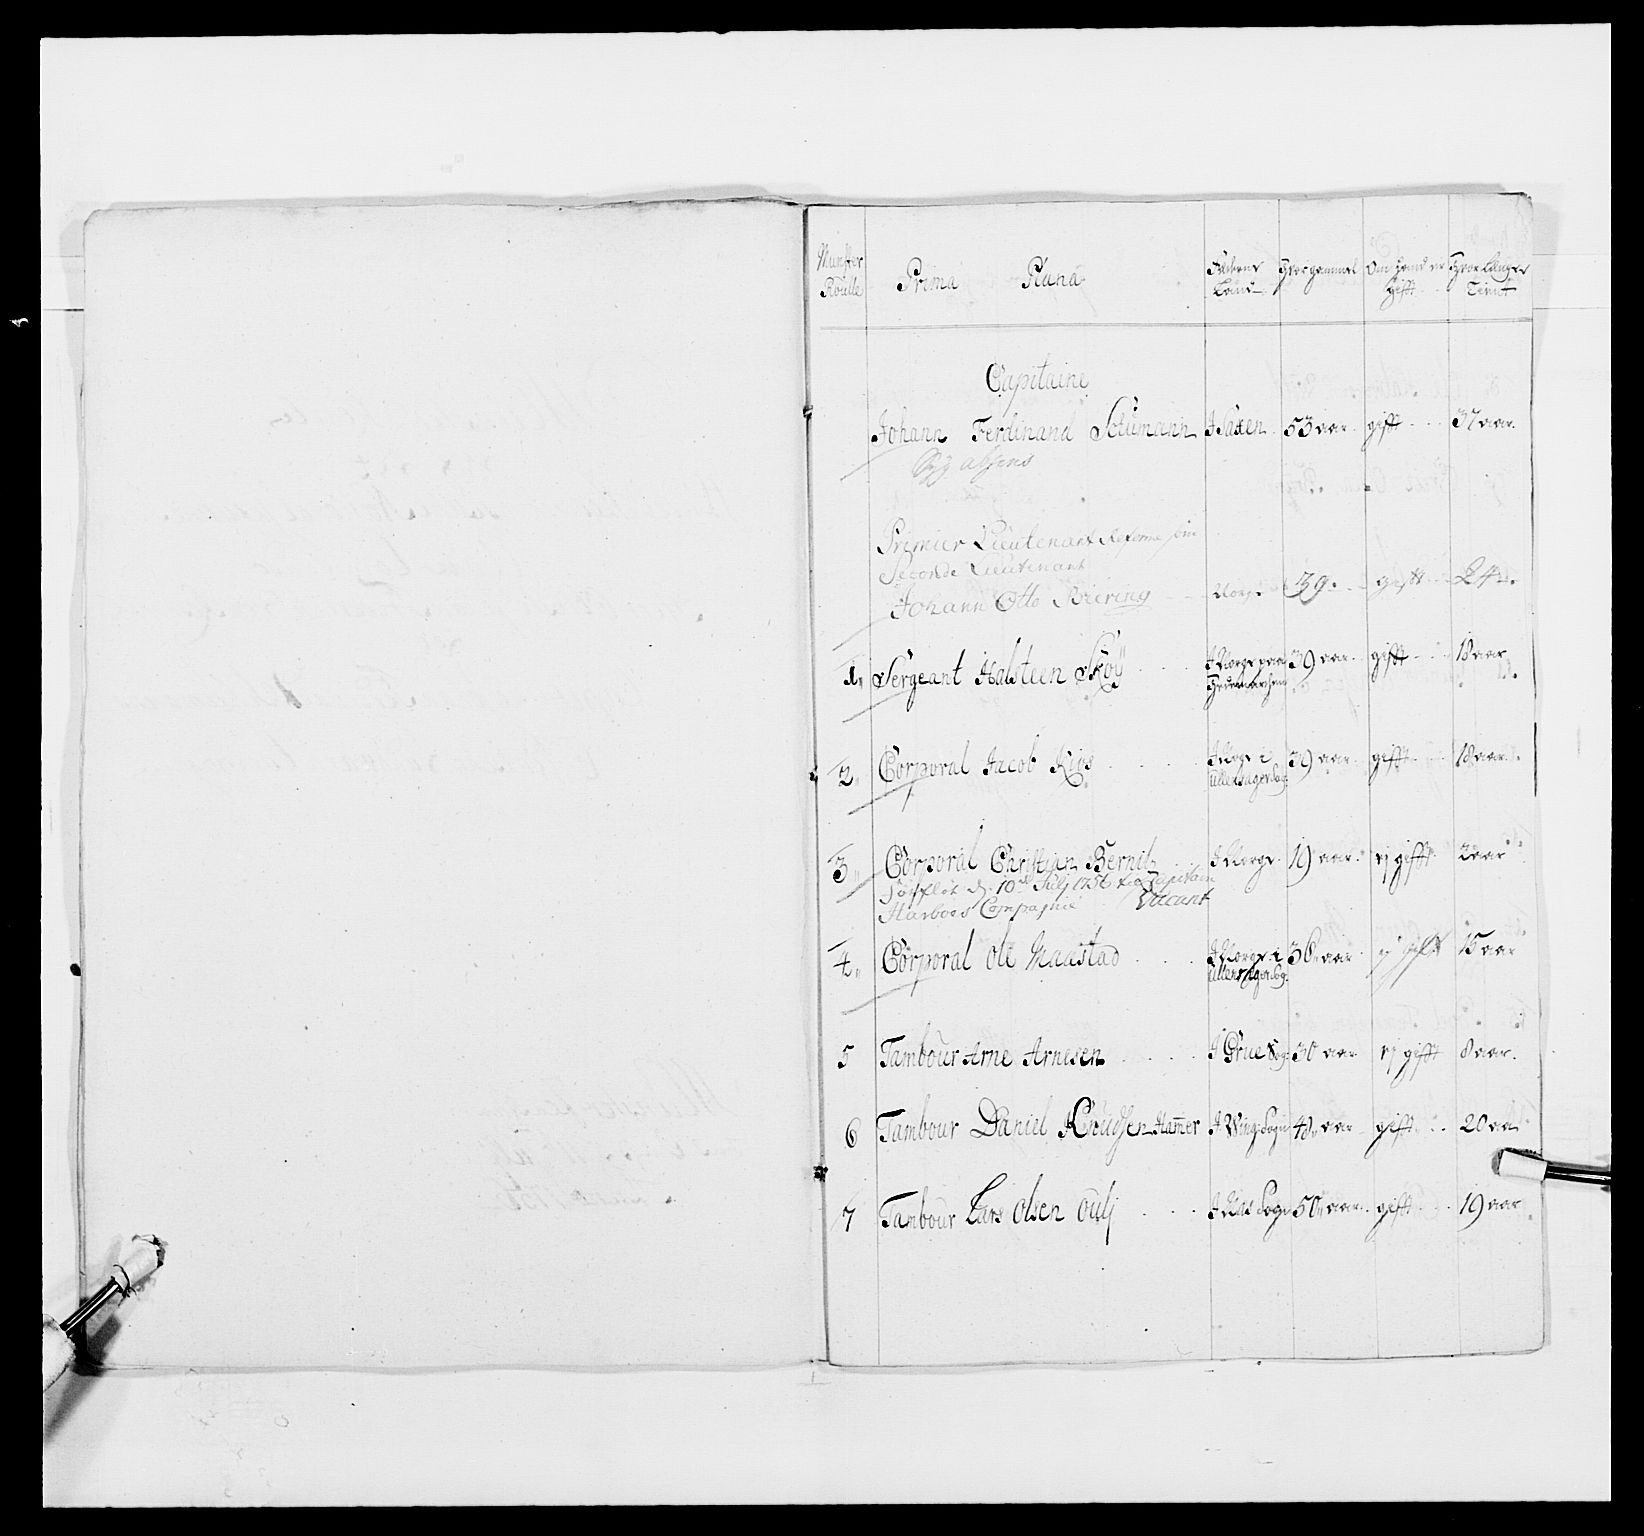 Munster Roulle Prima Plana Fæderne Land Hvor gammel Om hand er Gift Hvor længe Tient
Capitaine
Johann Ferdinand Schumann I Saxen 53 aar gift 37 aar.
Syg absens
Premier Lieutenant Reforme som
Seconde Lieutenant
Johann Otto Biering Norge 39. gift 24.
1. Sergeant Halsteen Skøÿ I Norge paa Hedemarchen 39 aar gifft 18 aar
2. Corporal Jacob Kios I Norge i Ullensager Sog: 39 aar gifft 18 aar.
3. Corporal Christian Bernitz I Norge 19 aar ej gifft 2 aar
d. 10de Julj 1756 Capitain
Harboes Compagnie Vacant
4. Corporal Ole Maastad I Norge i Ullensager Sog: 36 aar ej gifft 15 aar
5 Tambour Arne Arnesen I Grue Sog: 30 aar ej gifft 8 aar.
6 Tambour Daniel Knudsen Hamer I Wing: Sogn 48 aar gifft 20 aar
7 Tambour Lars Olsen Oulj I Nas Sogn 50 aar gifft 19 aar